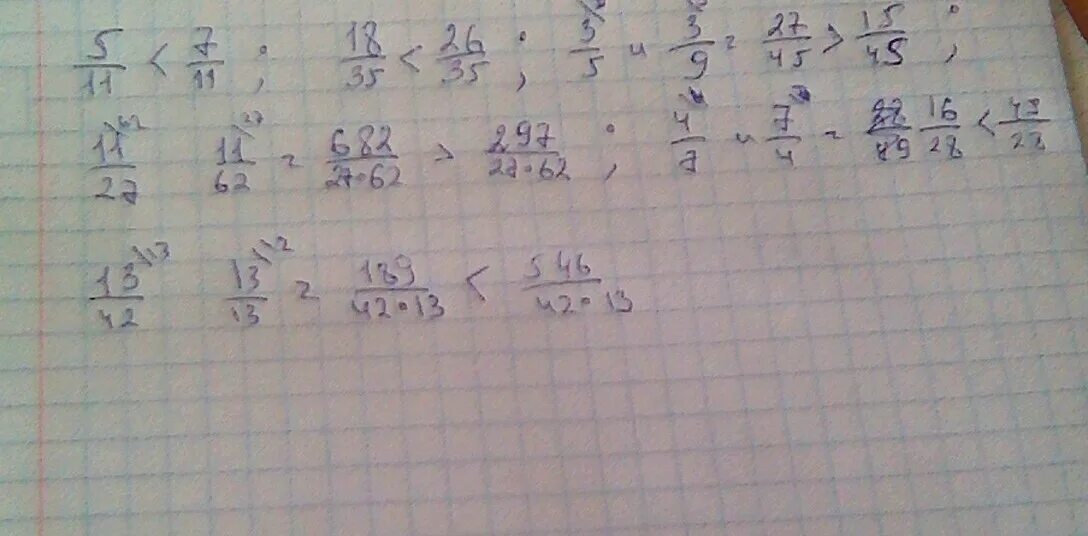 5/11 < 7/11 ; 18/35 < 26/35 ; 3/5 и 3/9 = 27/45 > 15/45 ;
11/27 11/62 = 682/27·62 > 297/27·62 ; 4/7 и 7/4 = 16/28 < 49/28
13/42 13/13 = 189/42·13 < 546/42·13